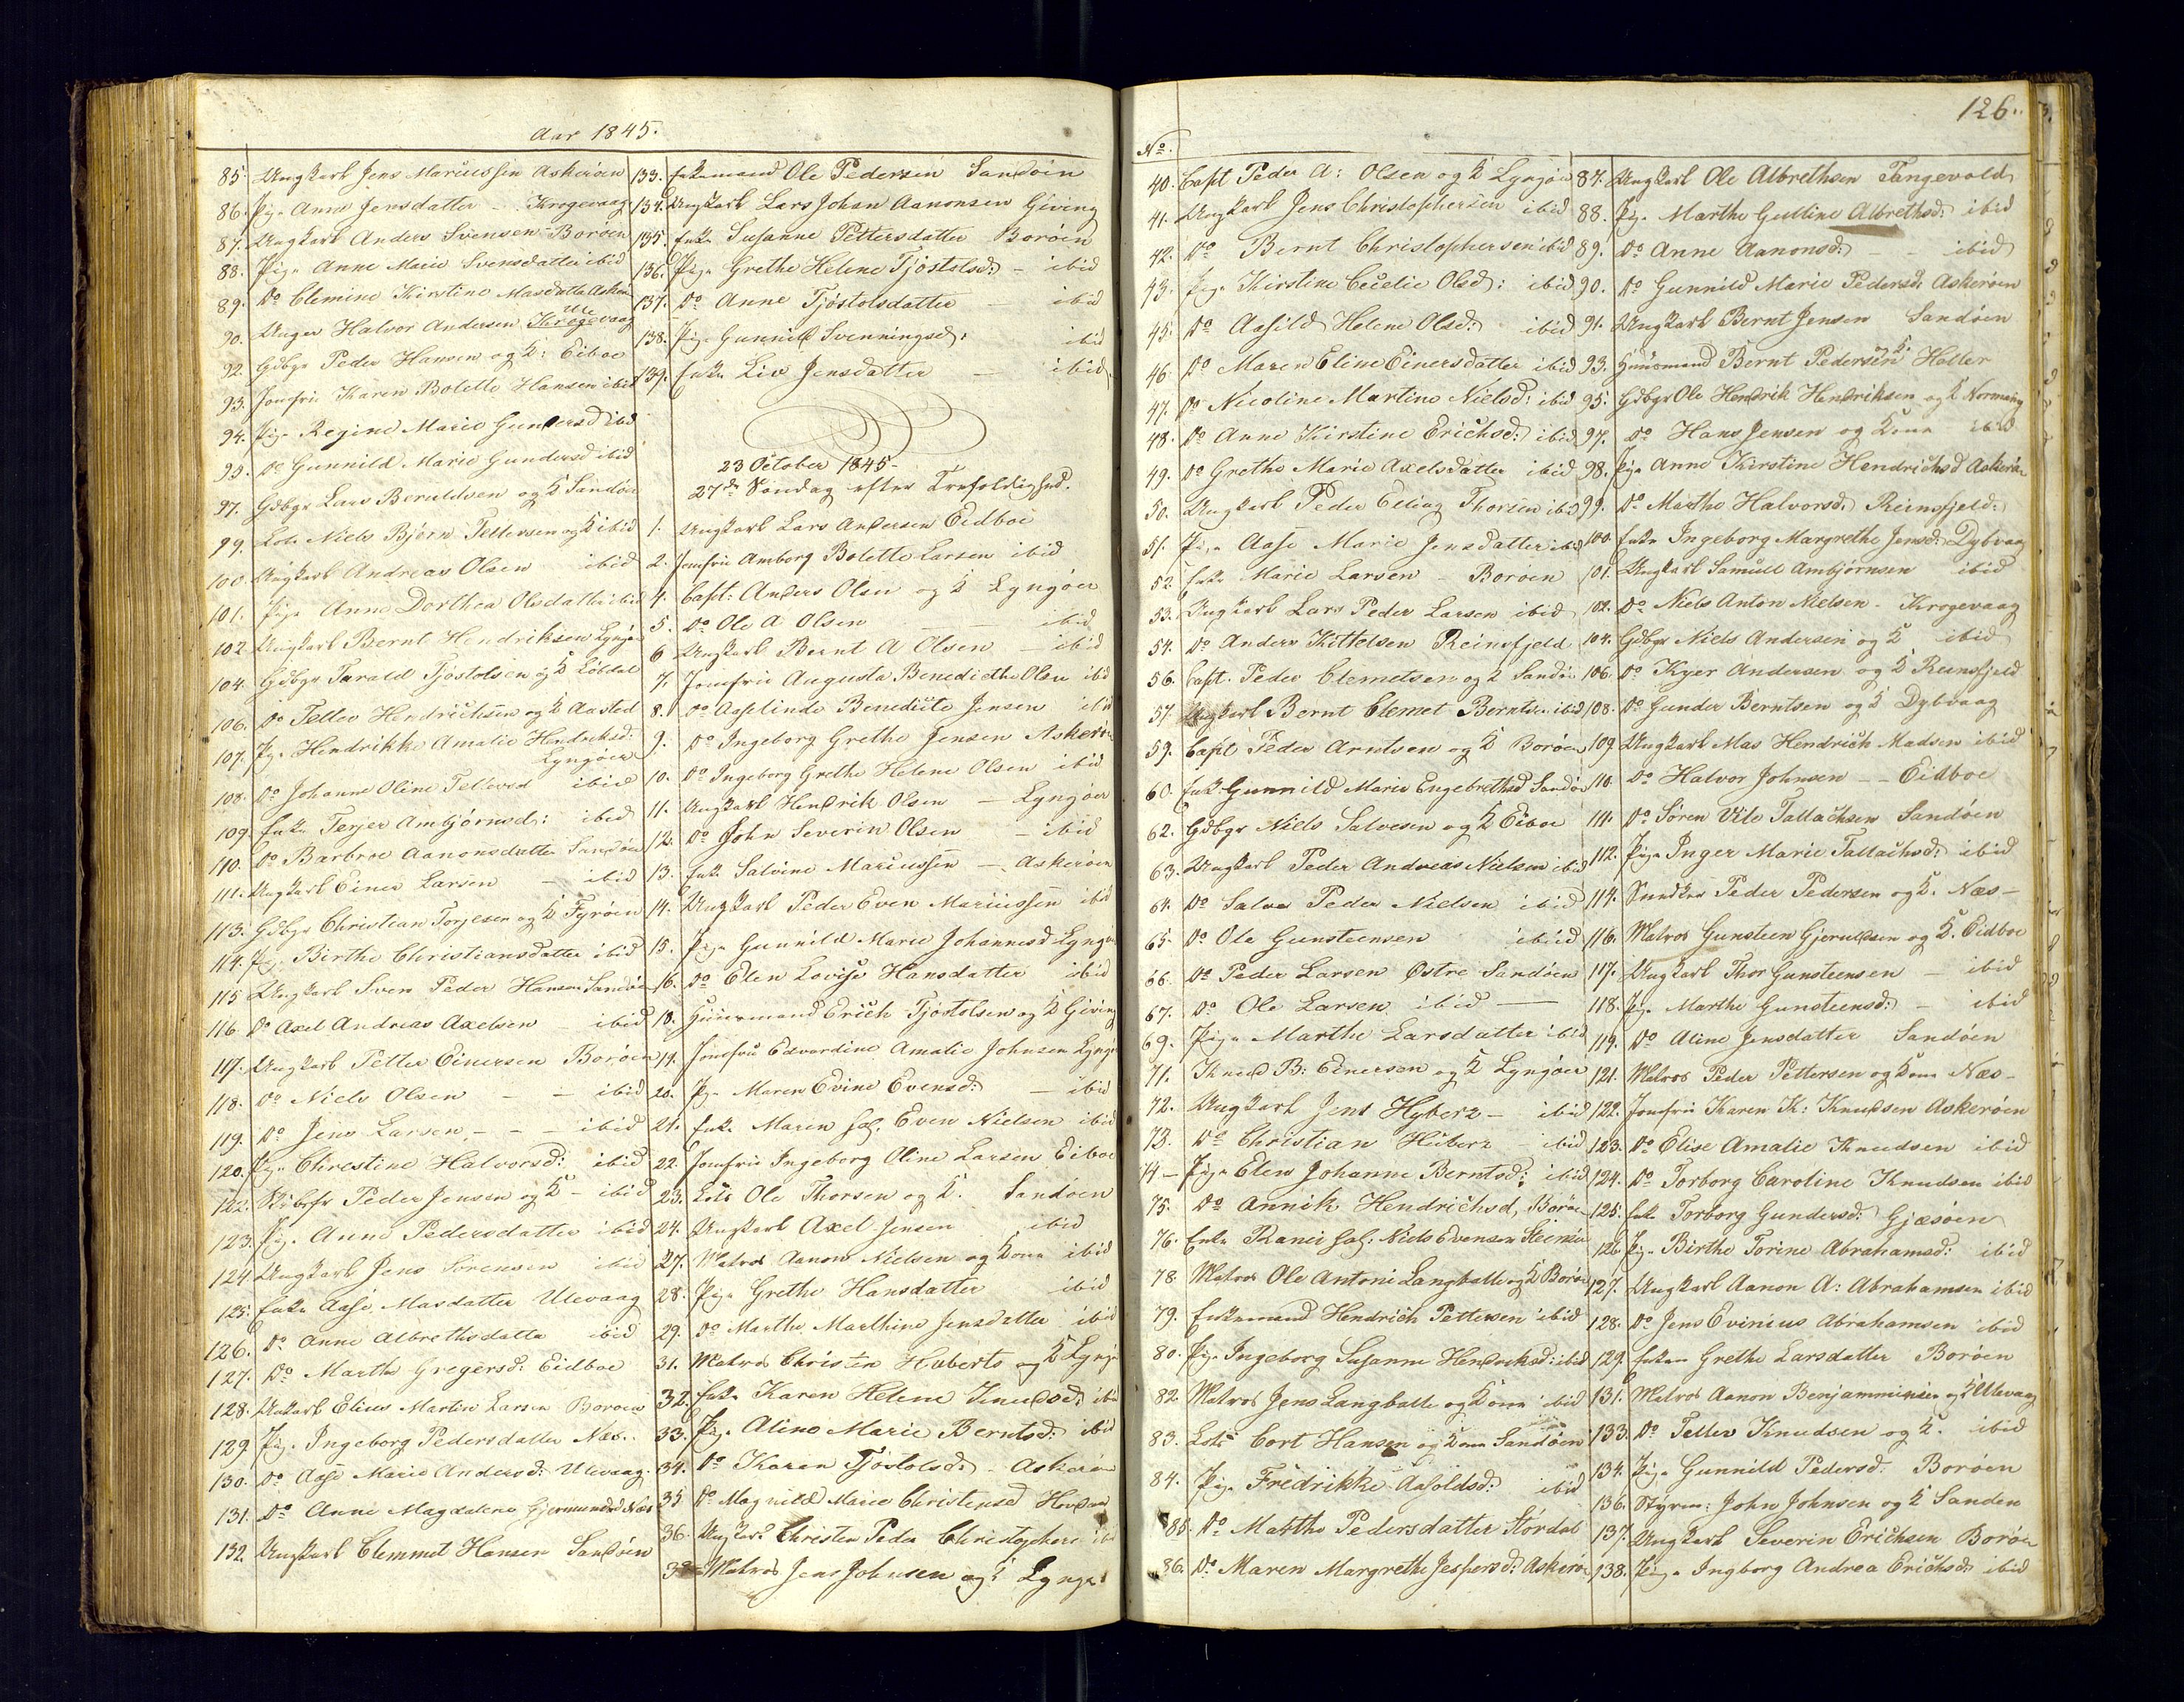 Aar 1845.
85. Ungkarl Jens Mariussen Askerøen
86. Pige Anne Jensdatter - Krogevaag
87. Ungkarl Anders Svensen - Borøen
88. Pige Anne Marie Svensdatter ibid
89. Do Clemine Kirstine Masdatter Asker
90. Unger Halvor Andersen Ulevaag
92. Gdbgr Peder Hansen og K: Eiboe
93. Jomfru Karen Bolette Hansen ibid
94. Pige Regine Marie Gundersd ibid
95. Do Gunnild Marie Gundersd ibid
97. Gdbgr Lars Beruldsen og K Sandøen
99. Lots Niels Bjørn Tellevsen og K ibid
100. Ungkarl Andreas Olsen ibid
101. Pige Anne Dorthea Olsdatter ibid
102 Ungkarl Bernt Hendriksen Lyngør
104. Gdbgr Tarald Tjøstolsen og K Løbdal
106. Do Tellev Hendrichsen og K Aasted
107. Pige Hendrikke Amalie Hendriksd:
Lyngøer
108. Do Johanne Oline Tellevsd ibid
109. Enke Terjer Ambjørnsd: ibid
110. Do Barbroe Aanonsdatter Sandøen
111. Ungkarl Einer Larsen - ibid
113. Gdbgr Christian Torjesen og K Fyrøen
114. Pige Birthe Christiansdatter ibid
115 Ungkarl Sven Peder Hansen Sandø
116. Do Axel Andreas Axelsen - ibid
117. Ungkarl Petter Einersen Borøen
118. Do Niels Olsen - - ibid
119. Do Jens Larsen - - - ibid
120. Pige Chrestine Halvorsd: ibid
122. Skibsfr Peder Jensen og K - ibid
123. Pige Anne Pedersdatter ibid
124 Ungkarl Jens Sørensen ibid
125. Enke Aase Masdatter Ulevaag
126. Do Anne Albrethsdatter ibid
127. Do Marthe Gregersd: Eidboe
128. Unkarl Elius Martin Larsen Borøen
129 Pige Ingeborg Pedersdatter Næs.
130. Do Aase Marie Andersd: Ulevaag.
131. Do Anne Magdalene Gjermundsd Næs
132 Ungkarl Clemmet Hansen Sandøen
133. Enkemand Ole Pedersen Sandøen
134. Ungkarl Lars Johan Aanonsen Giving
135. Enke Susanne Pettersdatter Borøen
136. Pige Grethe Helene Tjøstolsd: - ibid
137. Do Anne Tjøstolsdatter - ibid
138. Pige Gunnild Svenningsd: ibid
139. Enke Liv Jensdatter - ibid.
23 October 1845-
27de Søndag efter Trefoldighed.
1. Ungkarl Lars Andersen Eidboe
2. Jomfru Amborg Bolette Larsen ibid
4. Capt: Anders Olsen og K Lyngøer
5. Do Ole A Olsen - - ibid
6 Ungkarl Bernt A Olsen - ibid
7. Jomfrue Augusta Benedicthe Olsen ibid
8. Do Aaselinde Benedicte Jensen ibid
9. Do Ingeborg Grethe Jensen Askerø
10. Do Ingeborg Grethe Helene Olsen ibid
11. Ungkarl Hendrik Olsen - Lyngøer
12. Do John Severin Olsen - ibid
13. Enke Salvine Mariussen - Askerøen
14. Ungkarl Peder Even Mariussen ibid
15. Pige Gunnild Marie Johannesd Lyngø
16. Do Elen Lovise Hansdatter ibid
18. Huusmand Erich Tjøstolsen og K Giving
19. Jomfrue Edvardine Amalie Johnsen Lyngø
20. Pige Maren Evine Evensd: - ibid
21. Enke Maren sal. Even Nielsen ibid
22. Jomfrue Ingeborg Oline Larsen Eiboe
23. Lots Ole Thorsen og K. Sandøen
24. Ungkarl Axel Jensen ibid
27. Matros Aanon Nielsen og Kone ibid
28. Pige Grethe Hansdatter ibid
29. Do Marthe Marthine Jensdatter ibid
31. Matros Christen Huberts og K Lyngø
32. Enke Karen Helene Knudsd: ibid
33. Pige Aline Marie Berntsd: ibid
34. Do Karen Tjøstolsd: - Askerøen
35 Do Magnild Marie Christensd
36. Ungkarl Christen Peder Christophers ibid
38 Matros Jens Johnsen og K Lyngø
126.
No.
40. Capt Peder A: Olsen og K Lyngøer
41. Ungkarl Jens Christophersen ibid
42. Do Bernt Christophersen ibid
43. Pige Kirstine Cecelie Olsd: ibid
45. Do Aasild Helene Olsd: ibid
46. Do Maren Eline Einersdatter ibid
47. Do Nicoline Martine Nielsd: ibid
48. Do Anne Kirstine Erichsd: ibid
49. Do Grethe Marie Axelsdatter ibid
50. Ungkarl Peder Elias Thorsen ibid
51. Pige Aase Marie Jensdatter ibid
52. Enke Marie Larsen - Borøen
53. Ungkarl Lars Peder Larsen ibid
54. Do Anders Kittelsen Reinsfjeld
56. Capt. Peder Clemetsen og K Sandø
57. Ungkarl Bernt Clemet Berntsen ibid
59. Capt Peder Arntsen og K Borøen
60. Enke Gunnild Marie Engebrethsd Sandø
62. Gdbgr Niels Salvesen og K Eiboe
63. Ungkarl Peder Andreas Nielsen ibid
64. Do Salve Peder Nielsen ibid
65. Do Ole Gunsteensen ibid
66. Do Peder Larsen Østre Sandøen
67. Do Ole Larsen ibid -
69. Pige Marthe Larsdatter ibid
71. Knud B: Einersen og K Lyngøer
72. Ungkarl Jens Hyberz - ibid
73. Do Christian Huberz - ibid
74 - Pige Elen Johanne Berntsd: ibid
75. Do Annik Hendrichsd, Borøen
76. Enke sal. Niels Evensen
78. Matros Ole Antoni Langballe og K Borøe
79. Enkemand Hendrich Pettersen ibid
80. Pige Ingeborg Susanne Hendriksd: ibid
82. Matros Jens Langballe og Kone ibid
83. Lots Cort Hansen og Kone Sandøen
84. Pige Fredrikke Aasoldsd: ibid
85. Do Marthe Pedersdatter Stordal
86. Do Maren Margrethe Jespersd: Askerø
87. Ungkarl Ole Albrethsen Tangevold
88. Pige Marthe Gulline Albrethsd: ibid
89. Do Anne Aanonsd: - - ibid
90. Do Gunnild Marie Pedersd: Askerøen
91. Ungkarl Bernt Jensen Sandøen
93. Huusmand Bernt Pedersen og K Holter
95. Gdbgr Ole Hendrik Hendriksen og K
97. Do Hans Jensen og Kone ibid
98. Pige Anne Kirstine Hendrichsd Askerø
99. Do Marthe Halvorsd: Reinsfjeld:
100. Enke Ingeborg Margrethe Jensd: Dybvaag
101. Ungkarl Samuel Ambjørnsen ibid
102. Do Niels Anton Nielsen - Krogevaag
104. Gdbgr Niels Andersen og K ibid
106. Do Kyer Andersen og K Reinsfjeld
108. Do Gunder Berntsen og K Dybvaag
109. Ungkarl Mas Hendrich Madsen ibid
110. Do Halvor Johnsen - - Eidboe
111. Do Søren Vile Tallachsen Sandøen
112. Pige Inger Marie Tallachsd: ibid
114. Peder Pedersen og K. Næs -
116. Matros Gunsteen Gjeruldsen og K. Eidboe
117. Ungkarl Thor Gunsteensen - ibid
118. Pige Marthe Gunsteensd: - ibid
119. Do Aline Jensdatter Sandøen
121. Matros Peder Pettersen og Kone Næs -
122. Jomfrue Karen K: Knudsen Askerøen
123. Do Elise Amalie Knudsen ibid
124. Do Torborg Caroline Knudsen ibid
125. Enke Torborg Gundersd: Gjæsøen
126. Pige Birthe Torine Abrahamsd: ibid
127. Ungkarl Aanon A: Abrahamsen ibid
128. Do Jens Evinius Abrahamsen ibid
129. Enken Grethe Larsdatter Borøen
131. Matros Aanon Benjaminsen og K Ulevaag
133. Do Tellev Knudsen og K. ibid
134. Pige Gunnild Pedersd: Borøen
136. Styrm: John Johnsen og K Sanden
137. Ungkarl Severin Erichsen Borøe
138. Pige Ingborg Andrea Erichsd: ibid